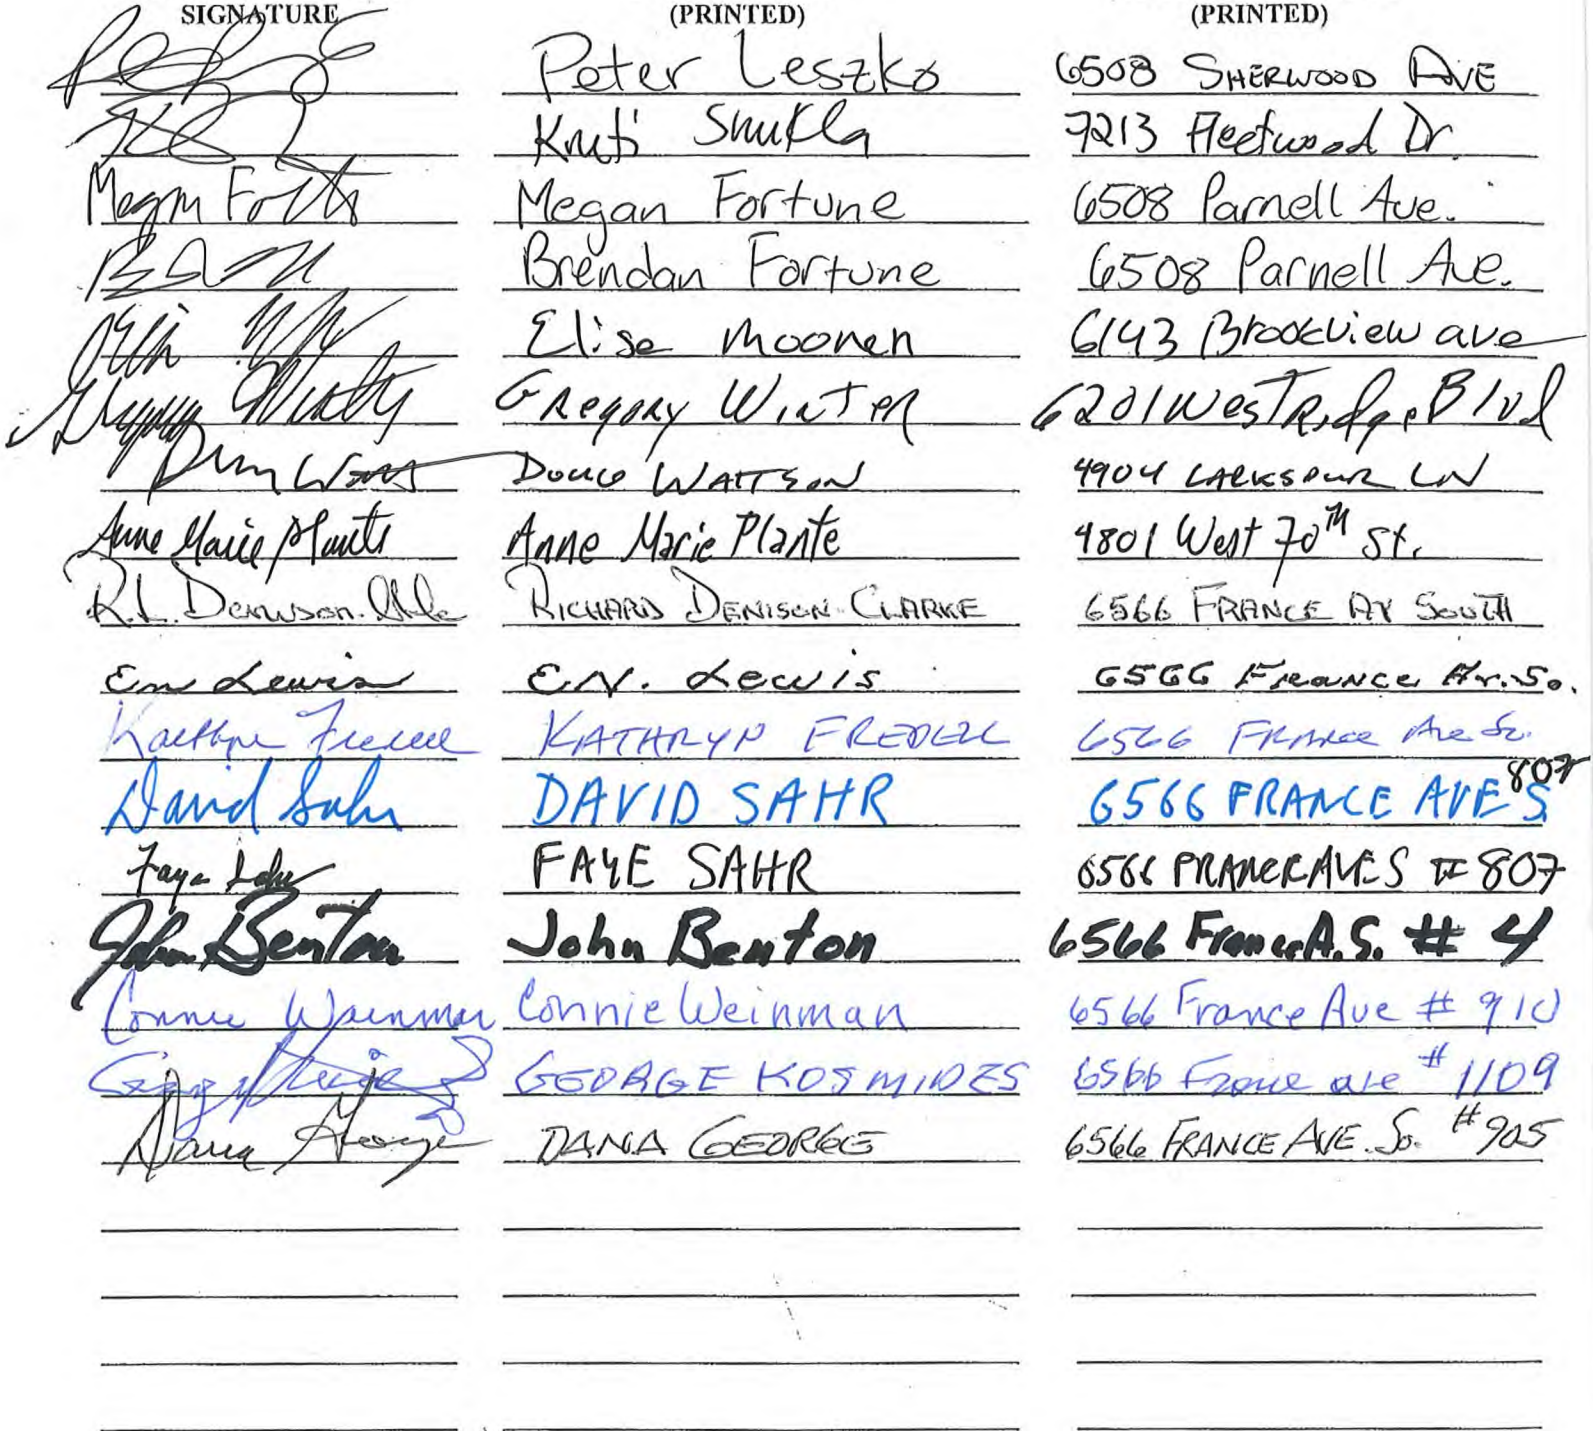 SIGNATURE (PRINTED) (PRINTED)
Peter Leszko 6508 SHERWOOD AVE
Kruti Shukla 7213 Fleetwood Dr.
Megan Fortune 6508 Parnell Ave.
Brendan Fortune 6508 Parnell Ave.
Elise Moonen 6143 Brookview ave
GREgory WinTER 6201 West Ridge Blvd
DOUG WATTSON 4904 LARKSPUR LN
Anne Marie Plante Anne Marie Plante 4801 West 70TH St.
R.L. Denison-Clarke RICHARD DENISON-CLARKE 6566 FRANCE AV SOUTH
En Lewis E.N. Lewis 6566 France Av. So.
Kathryn KATHRYN 6566 FRANCE Ave So.
David Sahr DAVID SAHR 6566 FRANCE AVE S 807
Faye Sahr FAYE SAHR 6566 FRANCE AVE S # 807
John Benton John Benton 6566 France A.S. # 4
Connie Weinman Connie Weinman 6566 France Ave # 910
GEORGE KOSMIDES 6566 France ave # 1109
Dana George DANA GEORGE 6566 FRANCE AVE. So. #905